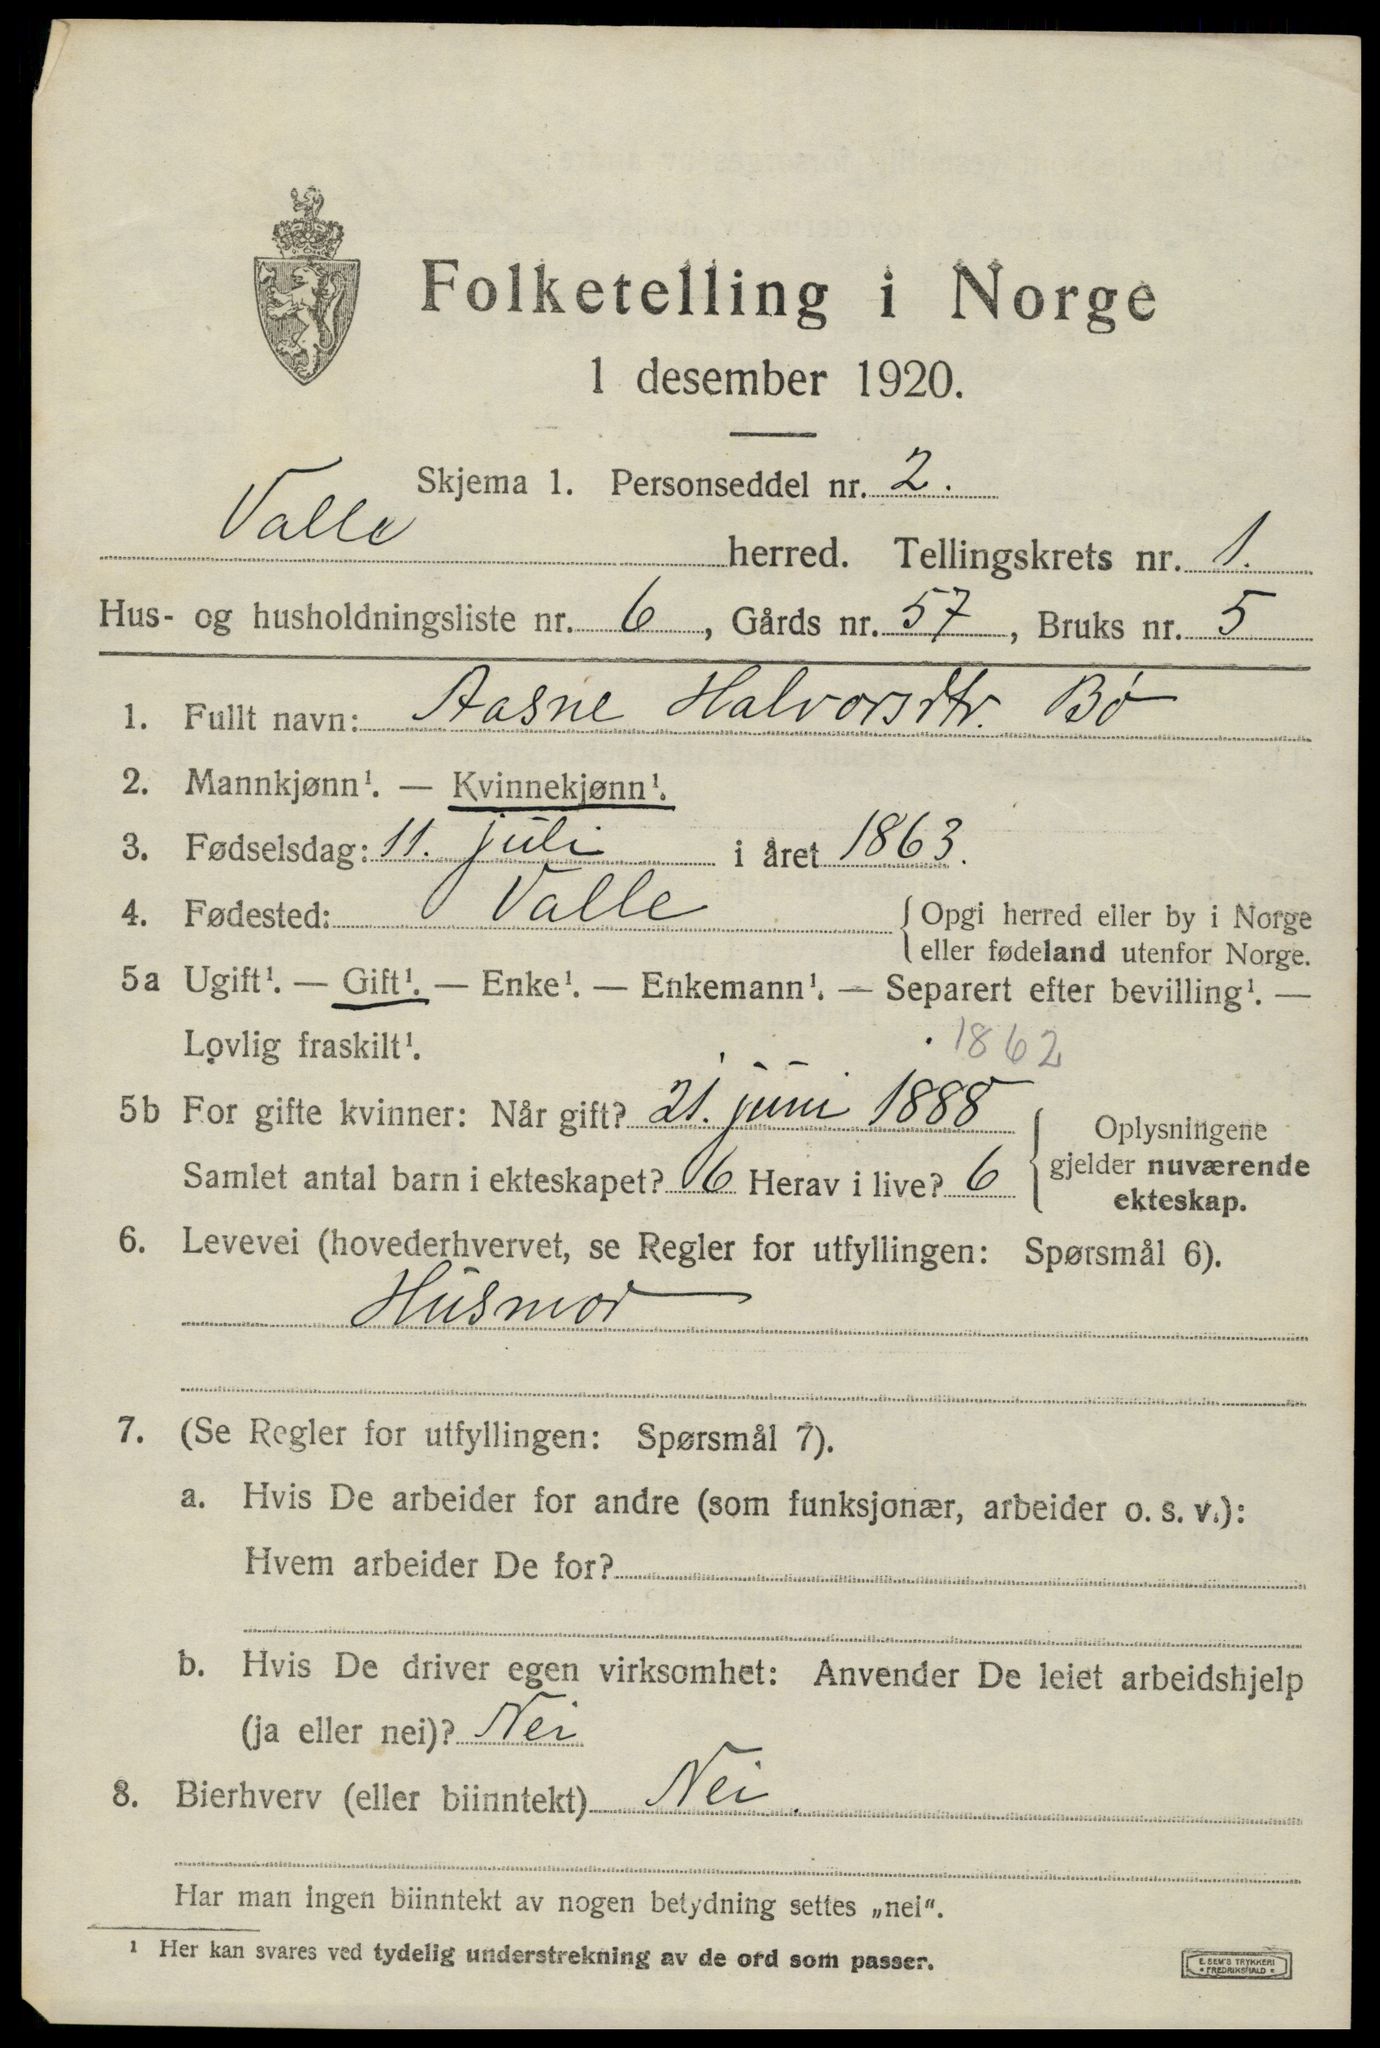 Folketelling i Norge
1 desember 1920.
Skjema 1. Personseddel nr. 2.
Valle herred. Tellingskrets nr. 1.
Hus- og husholdningsliste nr. 6, Gårds nr. 57, Bruks nr. 5
1. Fullt navn: Aasne Halvorsdtr. Bø
2. Mannkjønn¹. — Kvinnekjønn¹.
3. Fødselsdag: 11. juli i året 1863.
4. Fødested: Valle { Opgi herred eller by i Norge
eller fødeland utenfor Norge.
5a Ugift¹. — Gift¹. — Enke¹. — Enkemann¹. — Separert efter bevilling¹. —
Lovlig fraskilt¹. 1862
5b For gifte kvinner: Når gift? 21. juni 1888
Samlet antal barn i ekteskapet? 6 Herav i live? 6
{ Oplysningene
gjelder nuværende
ekteskap.
6. Levevei (hovederhvervet, se Regler for utfyllingen: Spørsmål 6).
Husmor
7. (Se Regler for utfyllingen: Spørsmål 7).
a. Hvis De arbeider for andre (som funksjonær, arbeider o. s. v.):
Hvem arbeider De for?
b. Hvis De driver egen virksomhet: Anvender De leiet arbeidshjelp
(ja eller nei)? Nei
8. Bierhverv (eller biinntekt) Nei.
Har man ingen biinntekt av nogen betydning settes „nei".
¹ Her kan svares ved tydelig understrekning av de ord som passer.
E. SEM'S TRYKKERI
* FREDRIKSHALD *